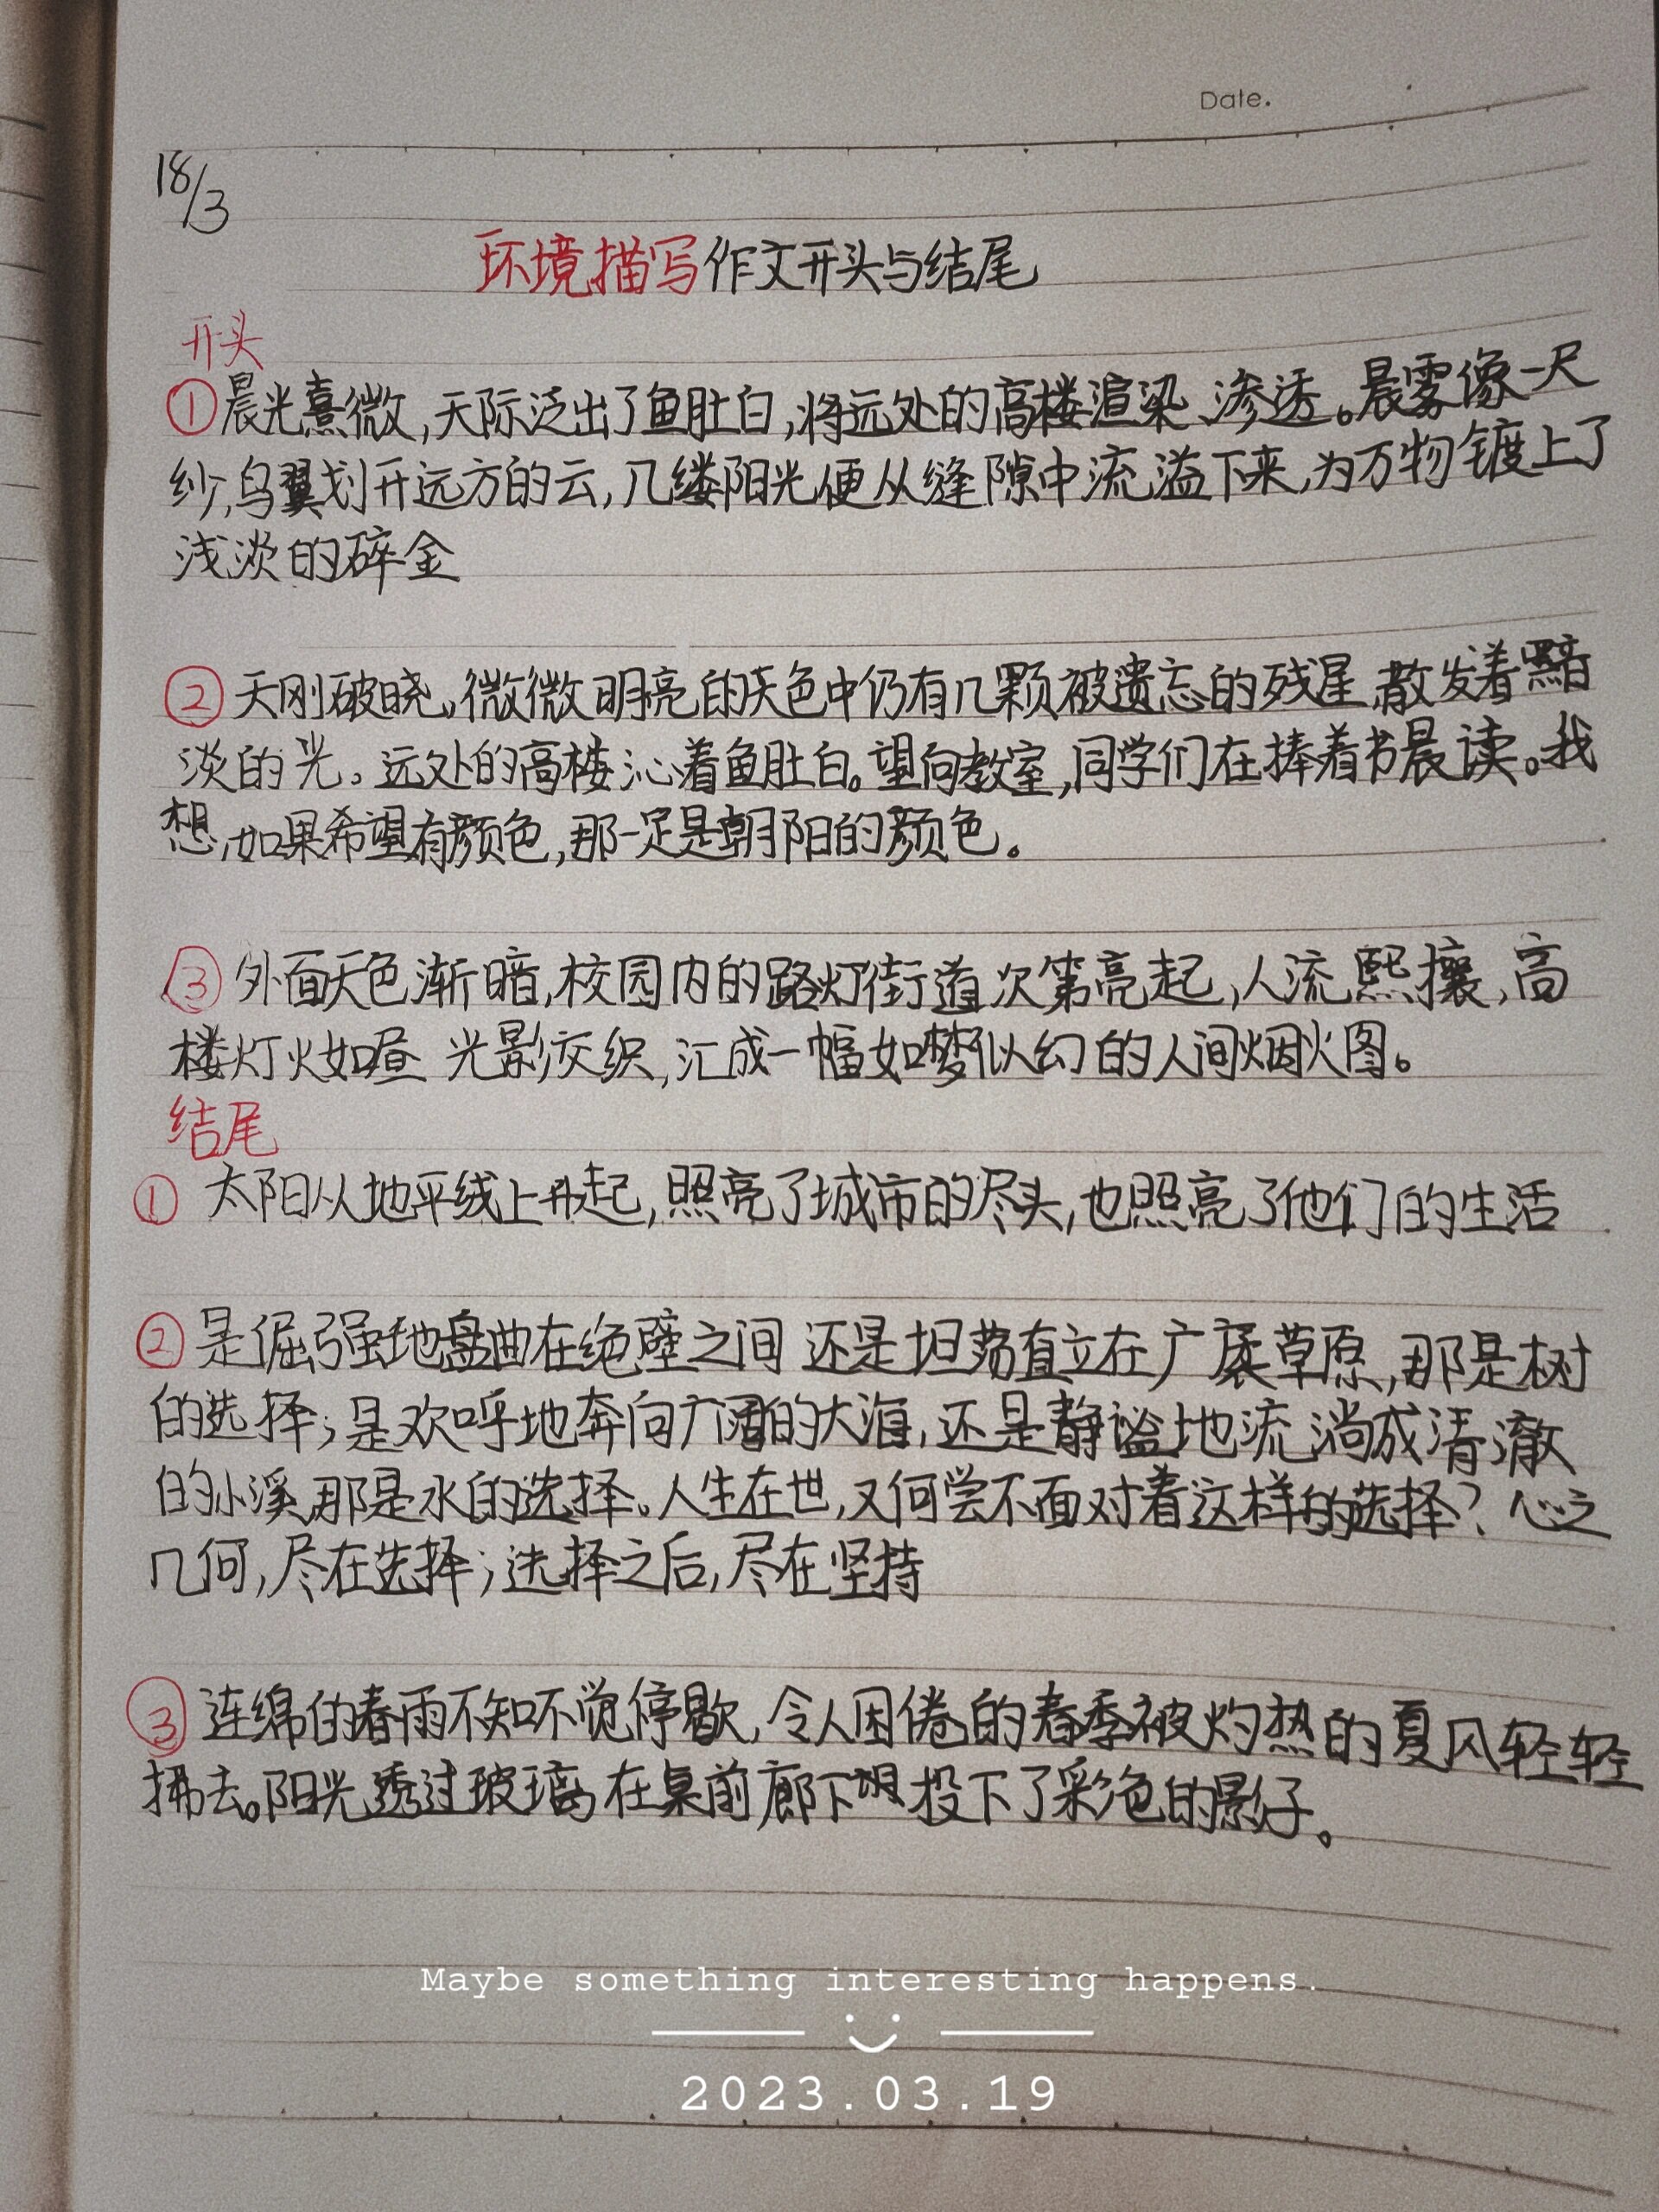 Date.
18/3
环境描写作文开头与结尾
开头
①晨光熹微,天际泛出了鱼肚白,将远处的高楼渲染、渗透。晨雾像一尺
纱,鸟翼划开远方的云,几缕阳光便从缝隙中流溢下来,为万物镀上了
浅淡的碎金
②天刚破晓,微微明亮的天色中仍有几颗被遗忘的残星,散发着黯
淡的光。远处的高楼沁着鱼肚白。望向教室,同学们在捧着书晨读。我
想,如果希望有颜色,那一定是朝阳的颜色。
③外面天色渐暗,校园内的路灯街道次第亮起,人流熙攘,高
楼灯火如昼 光影交织,汇成一幅如梦似幻的人间烟火图。
结尾
① 太阳从地平线上升起,照亮了城市的尽头,也照亮了他们的生活
②是倔强地盘曲在绝壁之间 还是坦荡直立在广袤草原,那是树
的选择;是欢呼地奔向广阔的大海,还是静谧地流淌成清澈
的小溪,那是水的选择。人生在世,又何尝不面对着这样的选择? 心之
几何,尽在选择;选择之后,尽在坚持
③连绵的春雨不知不觉停歇,令人困倦的春季被灼热的夏风轻轻
拂去。阳光透过玻璃 在桌前廊下 投下了彩色的影子。
Maybe something interesting happens.
2023.03.19